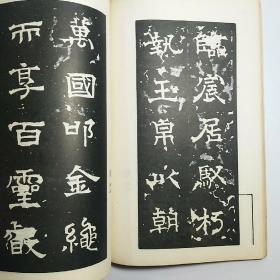 臨宸居馭朽
執玉帛以朝
萬國叩金繩
而享百靈